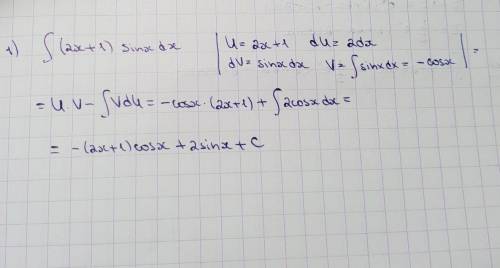 1) ∫ (2x+1) sinx dx | u = 2x+1 du = 2dx
dV = sinx dx V = ∫ sinx dx = -cosx | =
= u v - ∫ V du = -cosx · (2x+1) + ∫ 2cosx dx =
= -(2x+1) cosx + 2 sinx + C